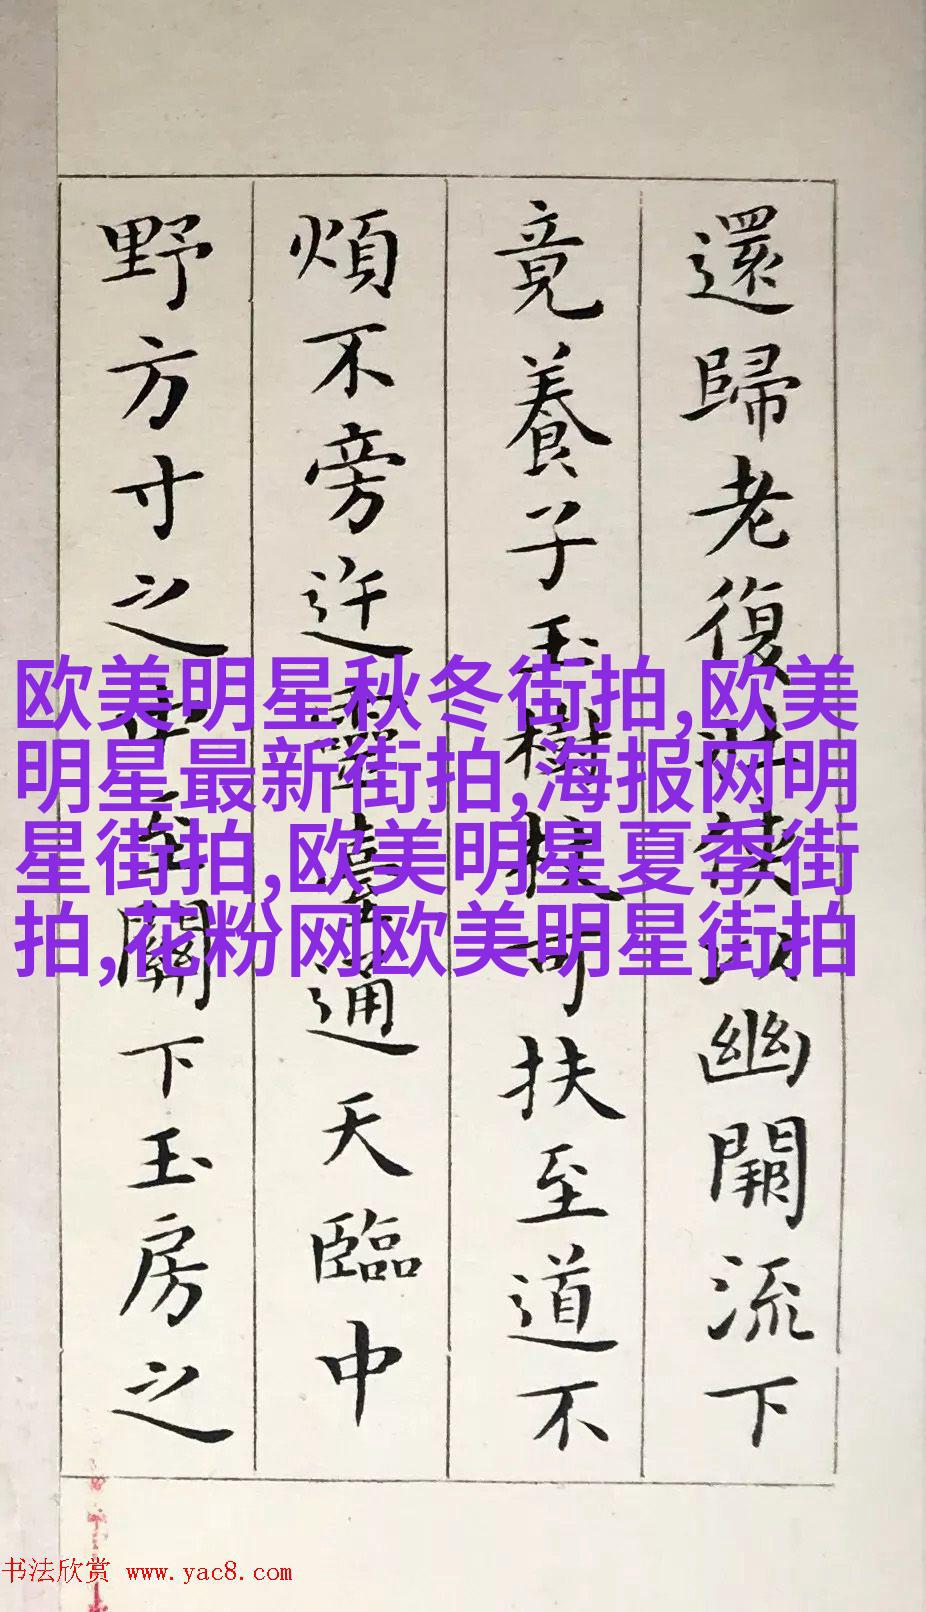 還歸老復幽闕流下
竟養子玉樹杖可扶至道不
煩不旁迕靈臺通天臨中
野方寸之中至關下玉房之
欧美明星秋冬街拍,欧美
明星最新街拍,海报网明
星街拍,欧美明星夏季街
拍,花粉网欧美明星街拍
书法欣赏 www.yac8.com